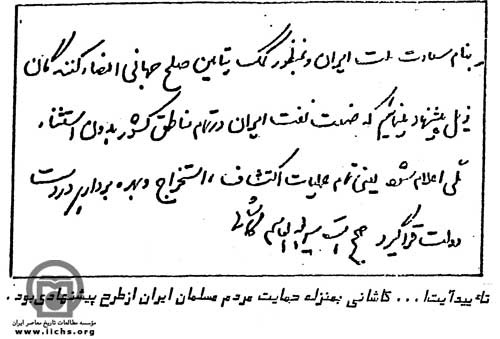 بنام سعادت ملت ایران و بمنظور کمک بتامین صلح جهانی امضاء کنندگان
ذیل پیشنهاد مینمائیم که صنعت نفت ایران در تمام مناطق کشور بدون استثناء
ملی اعلام شود یعنی تمام عملیات اکتشاف، استخراج و بهره برداری در دست
دولت قرار گیرد صحیح است سید ابوالقاسم کاشانی
تأیید آیت ا... کاشانی بمنزله حمایت مردم مسلمان ایران از طرح پیشنهادی بود.
مؤسسه مطالعات تاریخ معاصر ایران
www.iichs.org